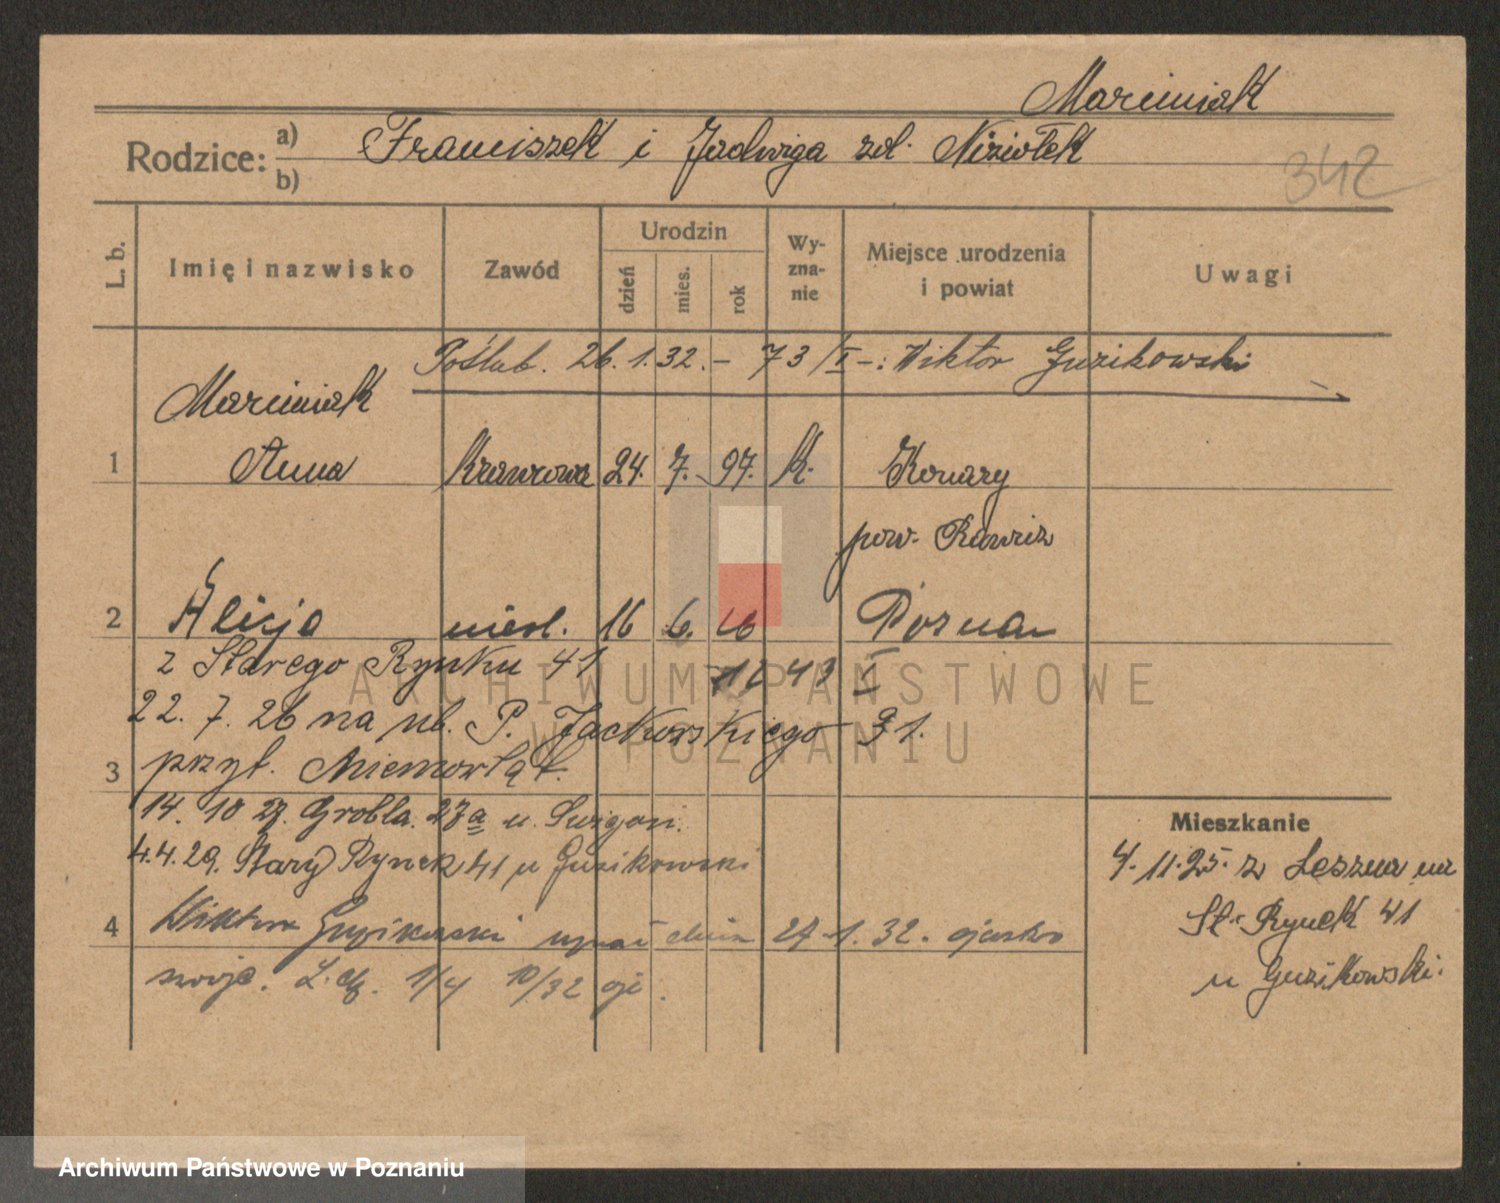 Marciniak
Rodzice: a) Franciszek i Jadwiga zd. Niziołek
b)
342
L. b.
Imię i nazwisko
Zawód
Urodzin
dzień
mies.
rok
Wy-
zna-
nie
Miejsce urodzenia
i powiat
Uwagi
Poślub. 26.1.32.- 73/I-: Wiktor Guzikowski
Marciniak
1 Anna Krawcowa 24. 7. 97. K. Konary
pow. Rawicz
2 Alicja nieśl. 16 6. 26 Poznań
z Starego Rynku 41 43 I
22. 7. 26 na ul. P. Jackowskiego 31.
3 przyt. Niemowląt.
14. 10 27. Grobla. 27a u.
4.4.29. Stary Rynek 41 u Guzikowski
4 Wiktor Guzikowski uznał dnia 27.1.32. ojcostwo
swoje. 1/4 10/32
Mieszkanie
4.11.25. z Leszna na
St. Rynek 41
u Guzikowski.
ARCHIWUM PAŃSTWOWE
W POZNANIU
Archiwum Państwowe w Poznaniu